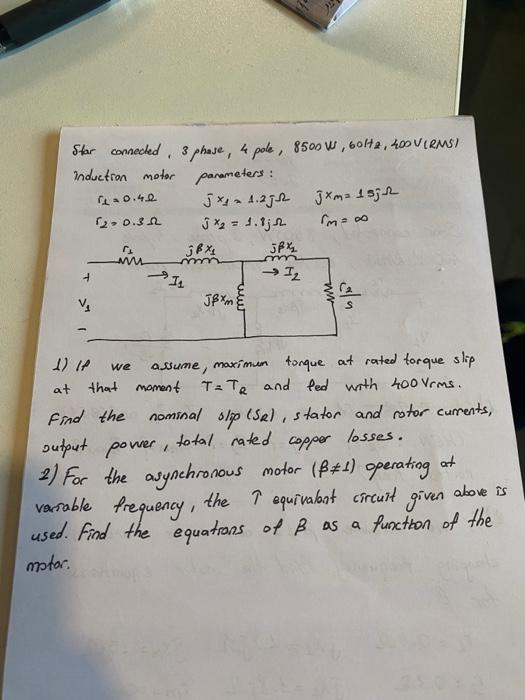 Star connected, 3 phase, 4 pole, 8500 W, 60Hz, 400V(RMS)
induction motor parameters:
r1=0.4Ω jx1=1.2jΩ jxm=15jΩ
r2=0.3Ω jx2=1.8jΩ rm=∞
r1 jβx1 jβx2
+ → I1 → I2
V1 jβxm r2/s
-
1) If we assume, maximum torque at rated torque slip
at that moment T=TR and fed with 400 Vrms.
Find the nominal slip (SR), stator and rotor currents,
output power, total rated copper losses.
2) For the asynchronous motor (β≠1) operating at
variable frequency, the T equivalent circuit given above is
used. Find the equations of β as a function of the
motor.